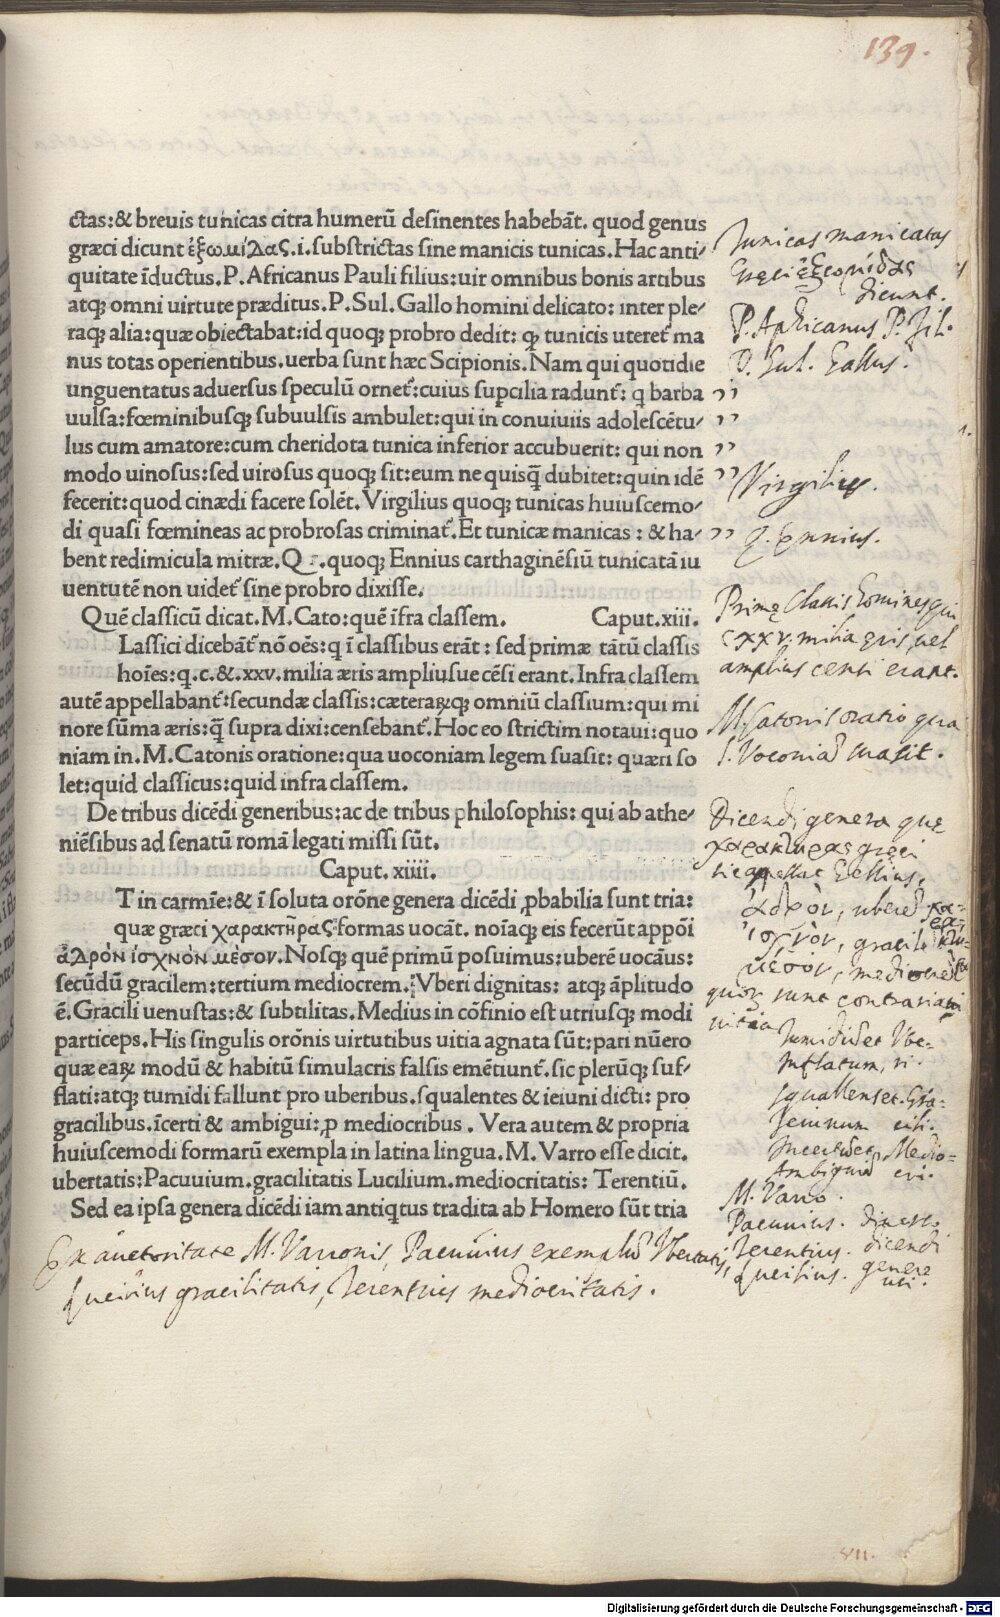 139.
ctas:& breuis tunicas citra humerū desinentes habebāt. quod genus
græci dicunt ἐξωμίδας.i.substrictas sine manicis tunicas.Hac anti⸗
quitate īductus.P.Africanus Pauli filius:uir omnibus bonis artibus
atqꝫ omni uirtute præditus.P.Sul.Gallo homini delicato: inter ple⸗
raqꝫ alia:quæ obiectabat:id quoqꝫ probro dedit: ꝙ tunicis uteret᷑ ma
nus totas operientibus.uerba sunt hæc Scipionis.Nam qui quotidie
unguentatus aduersus speculū ornet᷑:cuius supcilia radunt᷑: q barba
uulsa:fœminibusqꝫ subuulsis ambulet:qui in conuiuiis adolescētu⸗
lus cum amatore:cum cheridota tunica inferior accubuerit: qui non
modo uinosus:sed uirosus quoqꝫ sit:eum ne quisq̄ dubitet:quin idē
fecerit:quod cinædi facere solēt.Virgilius quoqꝫ tunicas huiuscemo⸗
di quasi fœmineas ac probrosas criminat᷑.Et tunicæ manicas : & ha⸗
bent redimicula mitræ.Q .quoqꝫ Ennius carthaginēsiū tunicatā iu
uentutē non uidet᷑ sine probro dixisse.
Quē classicū dicat.M.Cato:quē īfra classem. Caput.xiii.
Lassici dicebāt᷑ nō oēs:q ī classibus erāt : sed primæ tātū classis
hoīes:q.c.&.xxv.milia æris ampliusue cēsi erant.Infra classem
autē appellabant᷑:secundæ classis:cæterarꝝqꝫ omniū classium:qui mi
nore sūma æris:q̄ supra dixi:censebant᷑.Hoc eo strictim notaui:quo
niam in.M.Catonis oratione:qua uoconiam legem suasit: quæri so
let:quid classicus:quid infra classem.
De tribus dicēdi generibus:ac de tribus philosophis: qui ab athe⸗
niēsibus ad senatū romā legati missi sūt.
Caput.xiiii.
T in carmīe:& ī soluta orōne genera dicēdi ꝓbabilia sunt tria:
quæ græci χαρακτῆρας formas uocāt. noīaqꝫ eis fecerūt appōi
ἁδρὸν ἰσχνὸν μέσον.Nosqꝫ quē primū posuimus:uberē uocaūs:
secūdū gracilem:tertium mediocrem.Vberi dignitas: atqꝫ āplitudo
ē.Gracili uenustas:& subtilitas.Medius in cōfinio est utriusqꝫ modi
particeps.His singulis orōnis uirtutibus uitia agnata sūt:pari nūero
quæ earꝝ modū & habitū simulacris falsis emētiunt᷑.sic plerūqꝫ suf⸗
flati:atqꝫ tumidi fallunt pro uberibus.squalentes & ieiuni dicti: pro
gracilibus.īcerti & ambigui:ꝓ mediocribus . Vera autem & propria
huiuscemodi formarū exempla in latina lingua.M.Varro esse dicit.
ubertatis:Pacuuium.gracilitatis Lucilium.mediocritatis: Terentiū.
Sed ea ipsa genera dicēdi iam antiqtus tradita ab Homero sūt tria
Tunicas manicatas
Gręci ἐξωμίδας
dicunt.
P. Aphricanus P. fil.
P. Sul. Gallus.
Virgilius.
Q. Ennius.
Primę Classis homines qui
cxxv. milia ęris uel
amplius censi erant.
M. Catonis oratio qua
l. Voconiā suasit.
Dicendi genera quę
χαρακτῆρας gręci
appellat Gellius.
ἁδρὸν, uberē
ἰσχνὸν, gracilē
μέσον, mediocrē
quorū sunt contraria
uitia
Tumidū et Vbe-
inflatum, ri.
squallens et Gra-
Ieiunum cili.
Incertū et Medio-
Ambiguū cri.
M. Varro.
Pacuuius.
Terentius.
Lucilius.
diuerso
dicendi
genere
usi.
Ex auctoritate M. Varronis, Pacuuius exemplū Vbertatis,
Lucilius gracilitatis, Terentius mediocritatis.
VII.
Digitalisierung gefördert durch die Deutsche Forschungsgemeinschaft - DFG